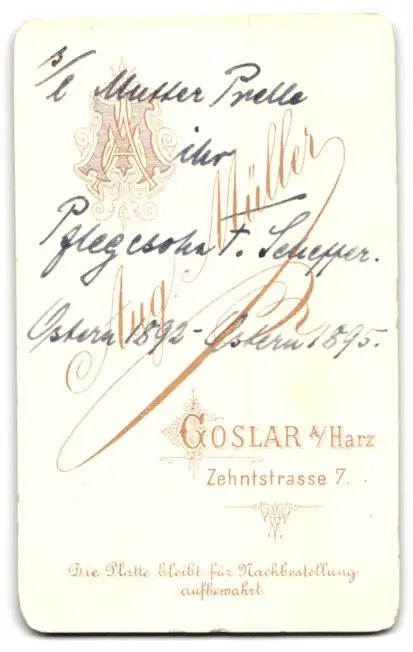 s/l Mutter Prelle
ihr
Pflegesohn F. Scheffer.
Ostern 1892 - Ostern 1895.
AM
Aug. Müller
GOSLAR A/Harz
Zehntstrasse 7.
Die Platte bleibt für Nachbestellung
aufbewahrt.